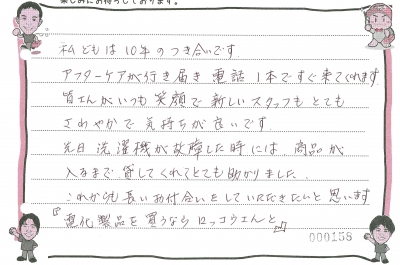 楽しみにお待ちしております。
私どもは10年のつき合いです
アフターケアが行き届き 電話1本ですぐ来てくれます
皆さんがいつも笑顔で新しいスタッフもとても
さわやかで気持ちが良いです
先日洗濯機が故障した時には、商品が
入るまで貸してくれてとても助かりました。
これからも長いお付合いをしていただきたいと思います
『電化製品を買うならロッコウさんと』
000158